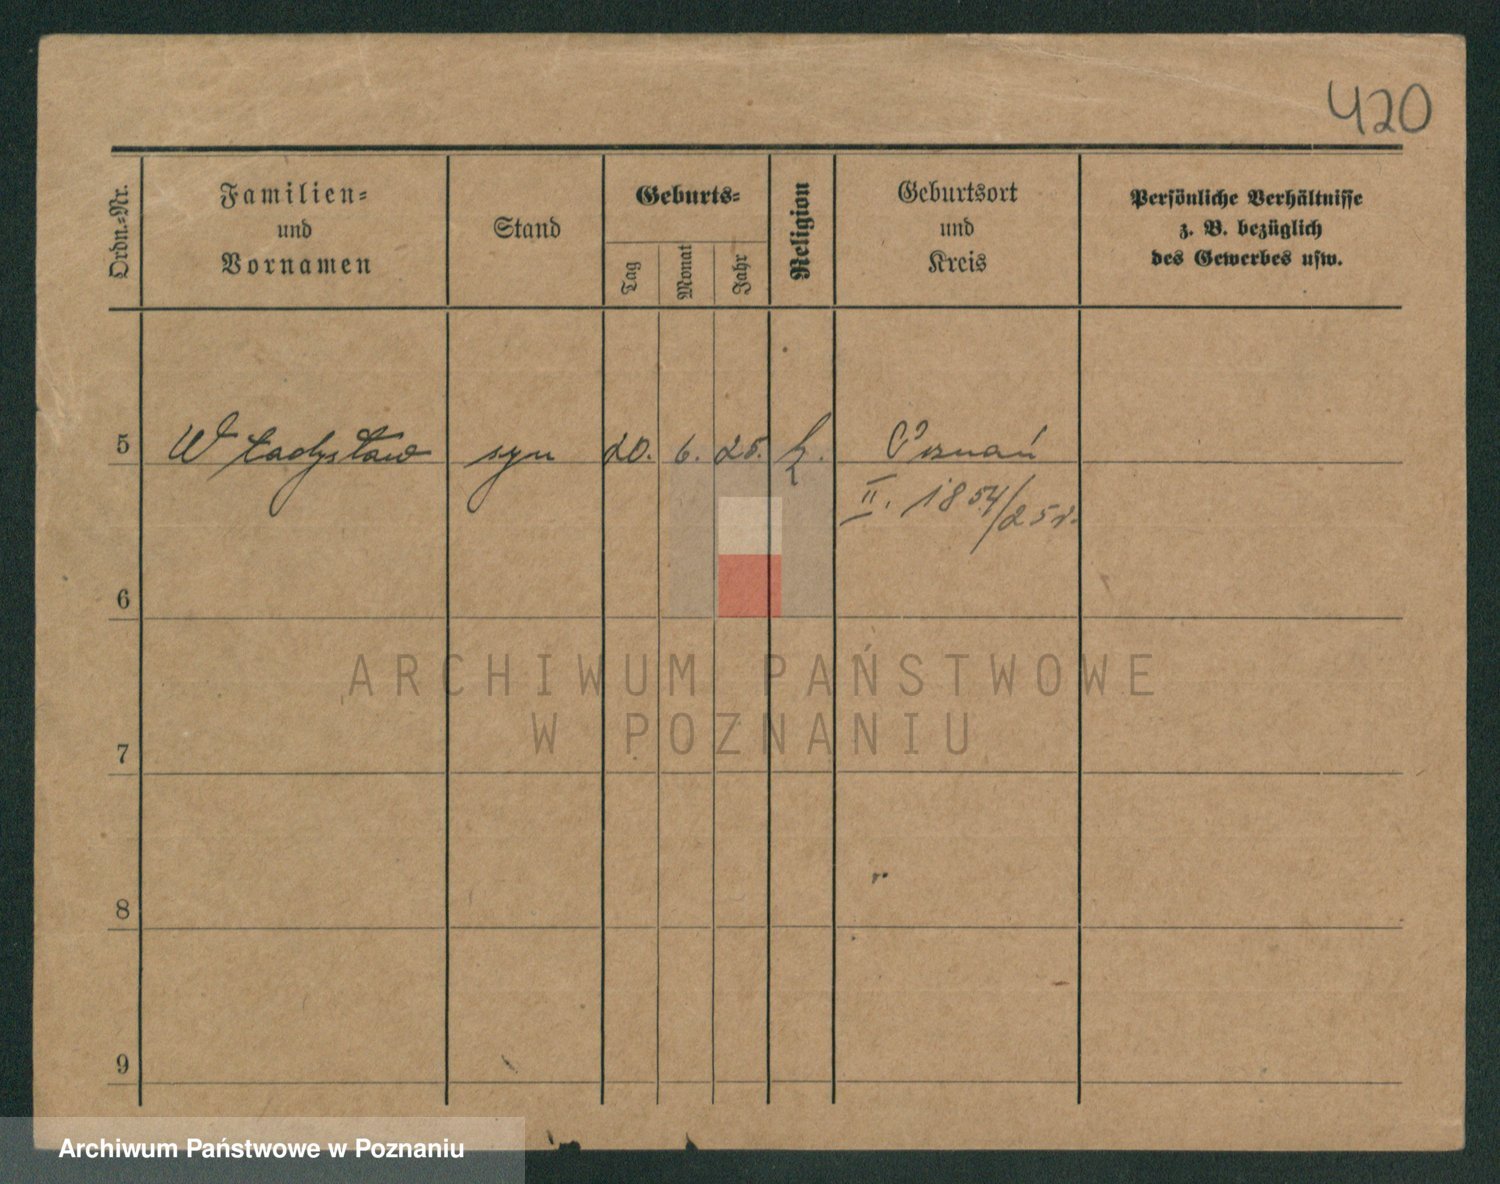 420
Ordn.-Nr.
Familien-
und
Vornamen
Stand
Geburts-
Tag
Monat
Jahr
Religion
Geburtsort
und
Kreis
Persönliche Verhältnisse
z. B. bezüglich
des Gewerbes usw.
5 Władysław syn 20. 6. 25. k. Poznań
II. 1854/25 r.
6
ARCHIWUM PAŃSTWOWE
W POZNANIU
7
8
9
Archiwum Państwowe w Poznaniu